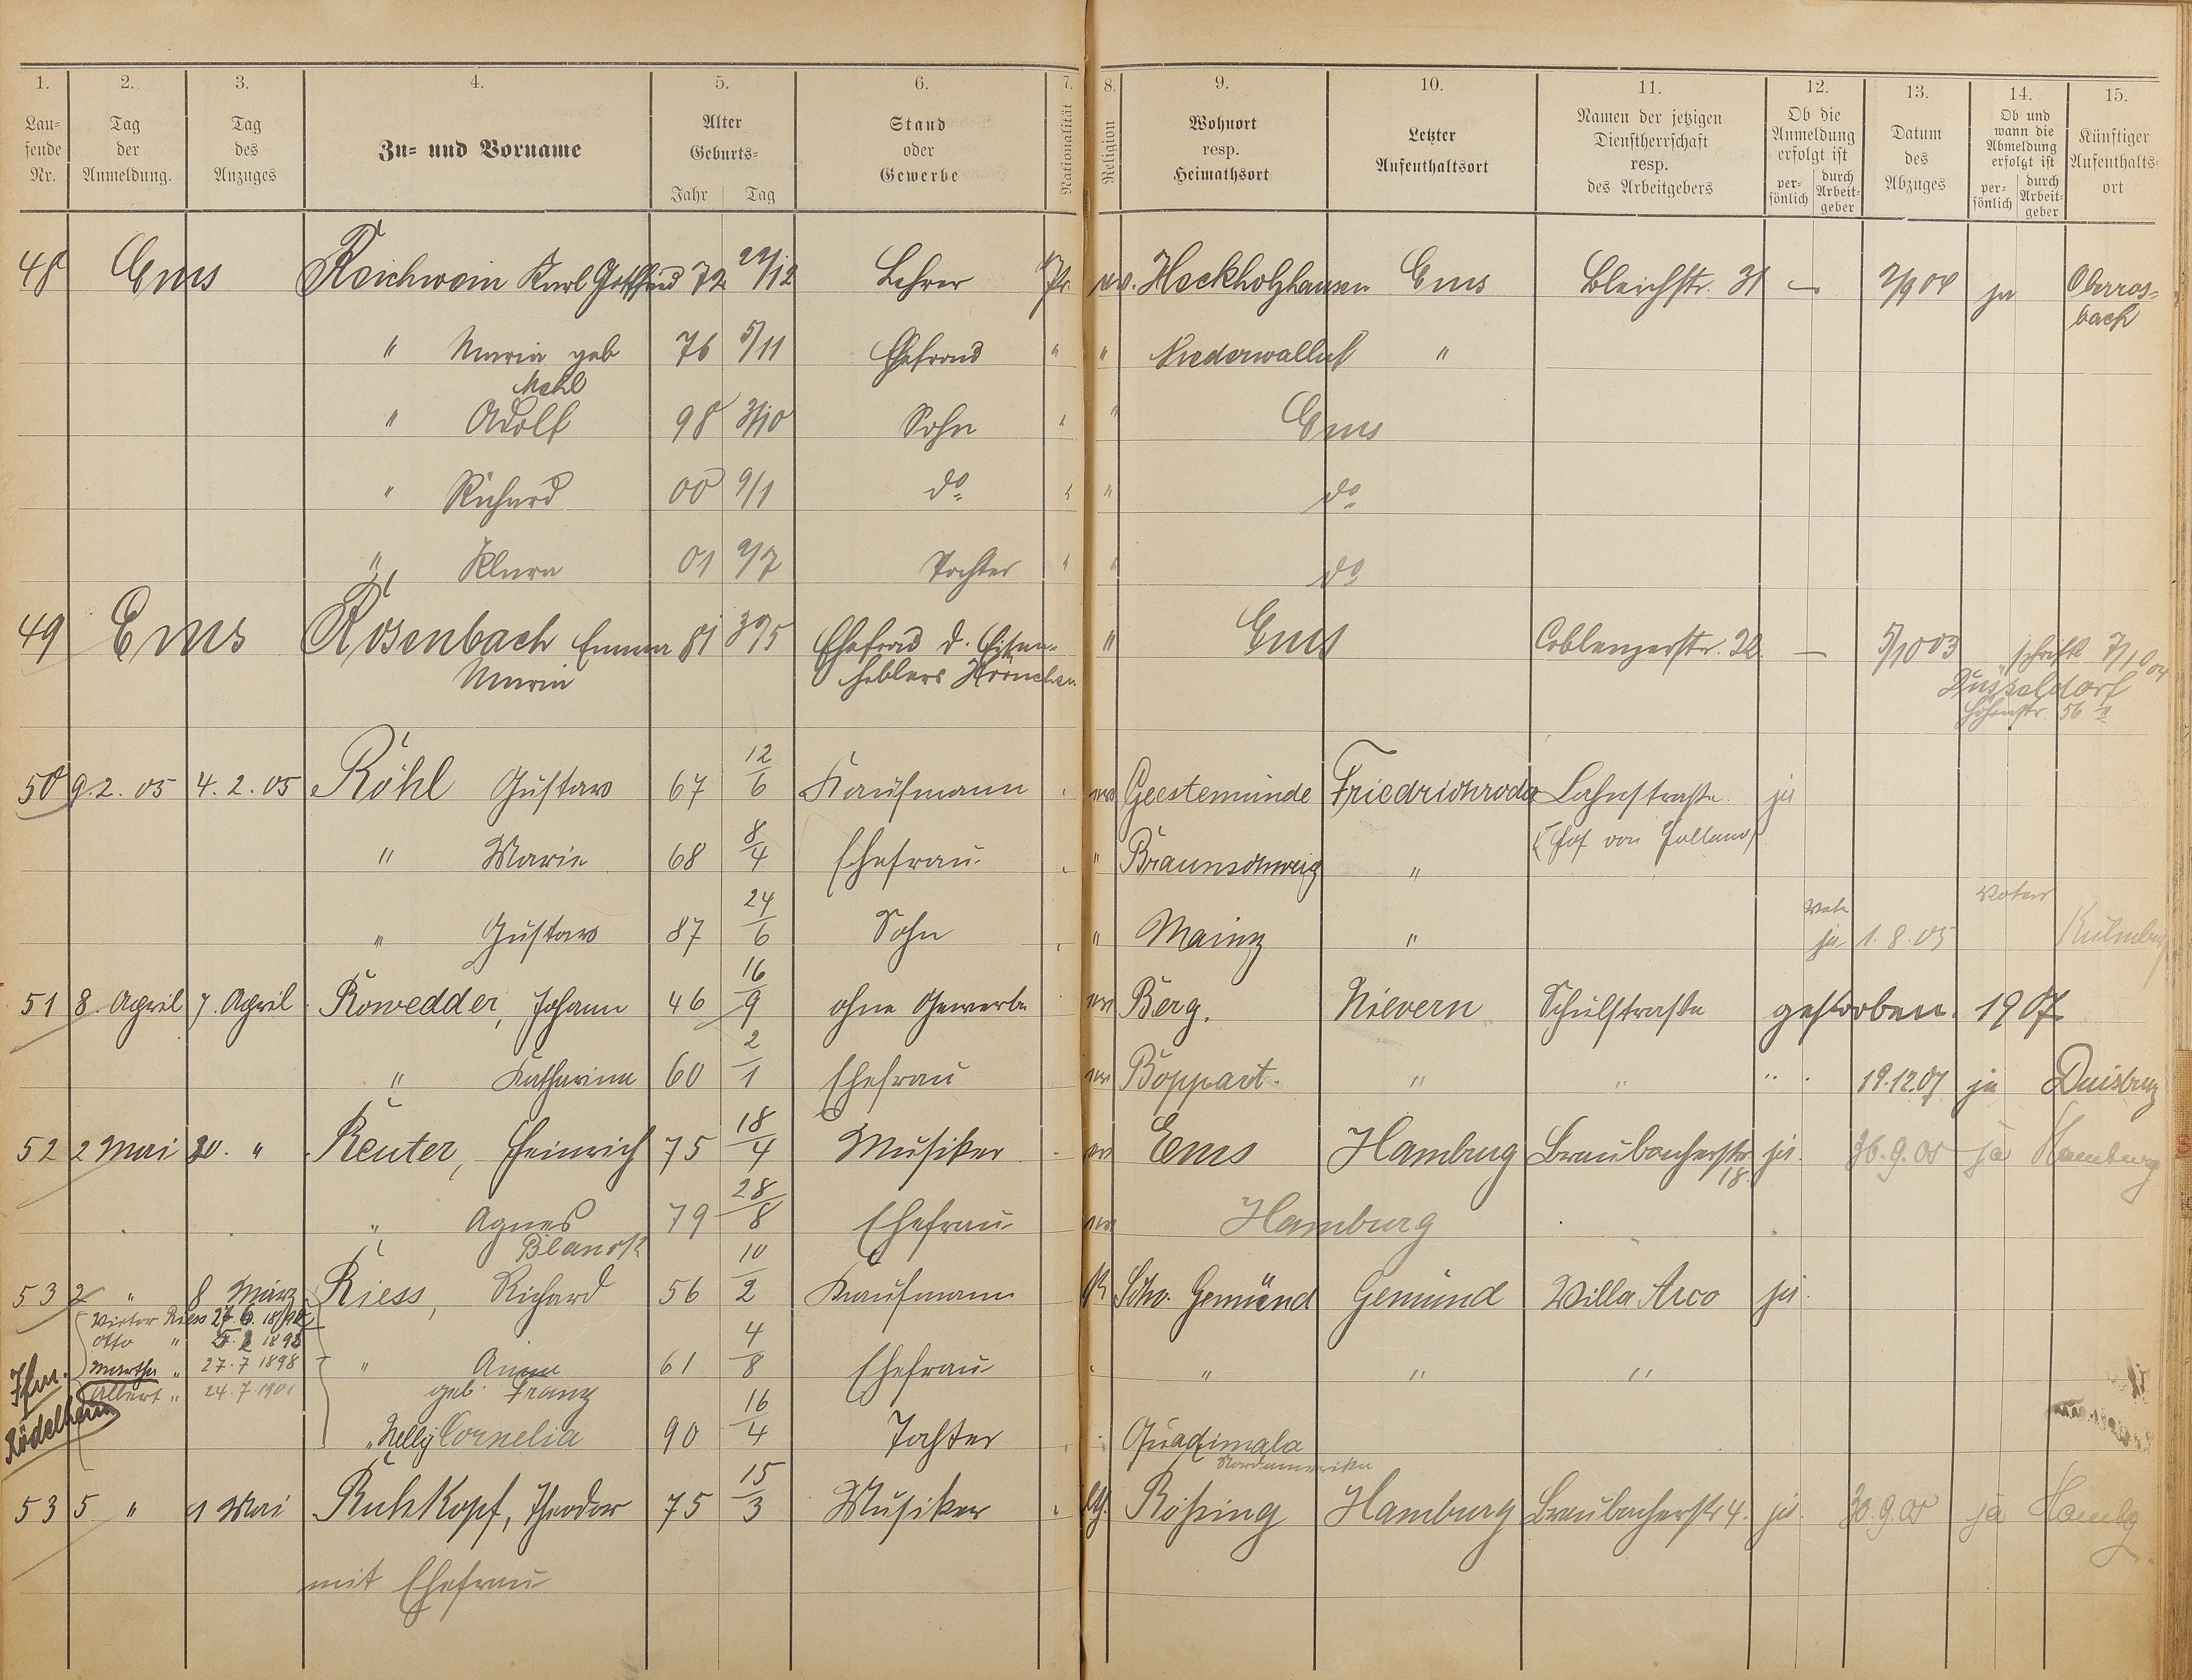 1. 2. 3. 4. 5. 6. 7. 8. 9. 10. 11. 12. 13. 14. 15.
Lau-fende Nr. Tag der Anmeldung. Tag des Anzuges Zu- und Vorname Alter Geburts- Jahr Tag Stand oder Gewerbe Nationalität Religion Wohnort resp. Heimathsort Letzter Aufenthaltsort Namen der jetzigen Dienstherrschaft resp. des Arbeitgebers Ob die Anmeldung erfolgt ist per-sönlich durch Arbeit-geber Datum des Abzuges Ob und wann die Abmeldung erfolgt ist per-sönlich durch Arbeit-geber Künftiger Aufenthalts-ort
48 Ems Reichwein Karl Gottfried 72 22/12 Lehrer Pr. ev. Heckholzhausen Ems Bleichstr. 31 — 2/9 04 ja Oberros-
bach
" Maria geb 76 5/11 Ehefrau " " Niederwalluf "
Mehl
" Adolf 98 3/10 Sohn " " Ems
" Richard 00 9/1 do " " do
" Klara 01 9/7 Tochter " " do
49 Ems Rosenbach Emma 81 30/5 Ehefrau d. Eisen- " Ems Coblenzerstr. 32 — 5/10 03 schriftl 7/10 04
Maria Hörnchen Düsseldorf
56
50 9. 2. 05 4. 2. 05 Röhl Gustav 67 12/6 Kaufmann ev Geestemünde Friedrichroda Lahnstraße. ja
(Hof von Holland)
" Marie 68 8/4 Ehefrau " Braunschweig "
" Gustav 87 24/6 Sohn " Mainz " ja 1. 8. 05 Vater
51 8. April 7. April Rowedder, Johann 46 16/9 ohne Gewerbe ev Berg. Nievern Schulstraße gestorben. 1907.
" Katharina 60 2/1 Ehefrau ev Boppart. " " " 19.12.07 ja Duisburg
52 2 Mai 30. " Reuter, Heinrich 75 18/4 Musiker ev Ems Hamburg Braubacherstr 18. ja. 36. 9. 05 ja Hamburg
" Agnes 79 28/8 Ehefrau ev Hamburg
Blanck
53 2 " 8 März Riess, Richard 56 10/2 Kaufmann K Schw. Gemünd Gemünd Villa Arco ja.
Victor Riess 27. 6.
Otto "
Martha " 27. 7 1898 " Anna 61 4/8 Ehefrau " " " "
Albert " 24. 7. 1901 geb. Franz
Rödelheim
" Nelly Cornelia 90 16/4 Tochter Quatimala
Nordamerika
53 5 " 1 Mai Ruhkopf, Theodor 75 15/3 Musiker " Roßing Hamburg Braubacherstr 4. ja. 30. 9. 05 ja Hambg
mit Ehefrau